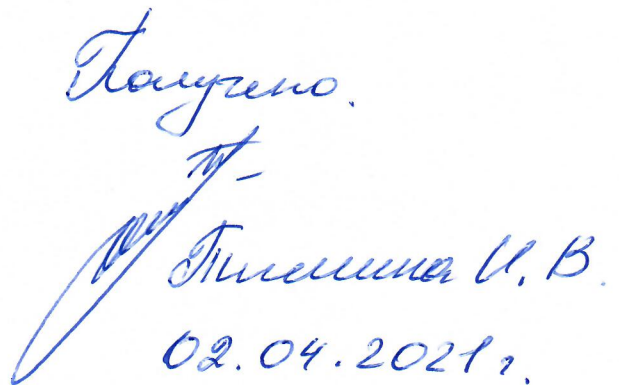 Получено.
Тишина И. В.
02.04.2021 г.